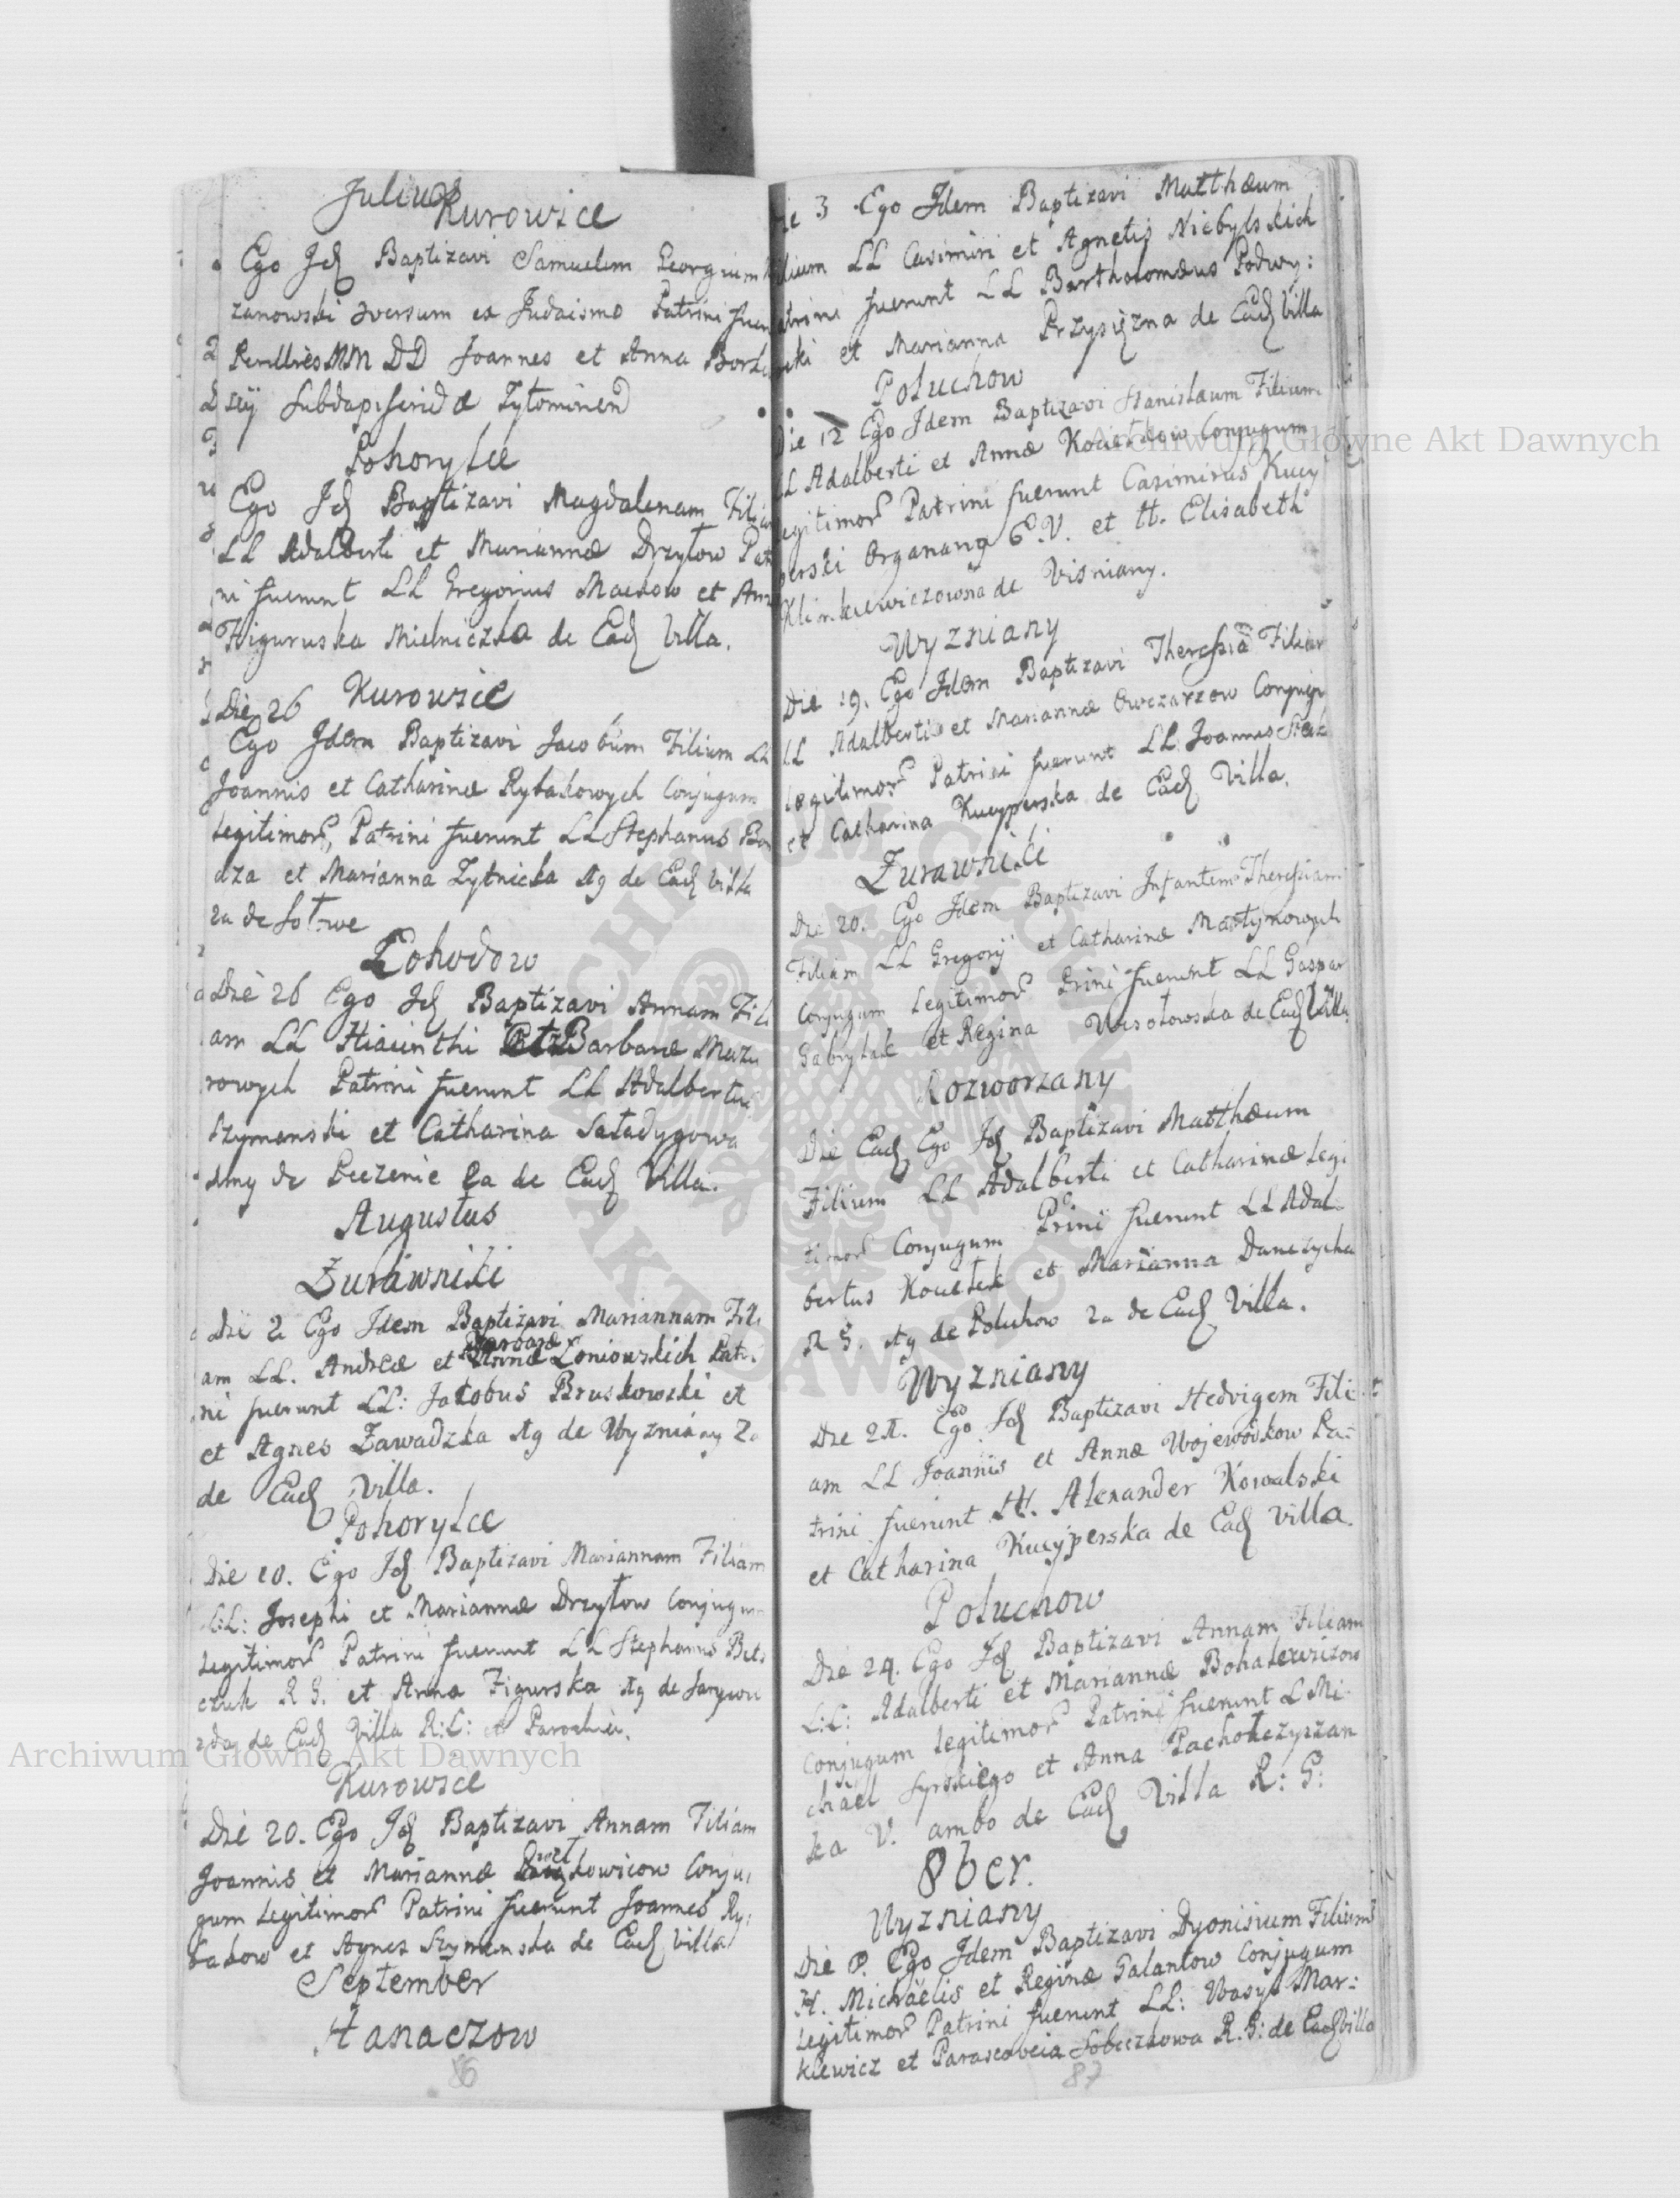 Julius
Kurowice
Ego Jd Baptizavi Samuelem Georgium
zanowski versum ex Judaismo Patrini fuer
MM DD Joannes et Anna
Pohorylce
Ego Jd Baptizavi Magdalenam Filia
LL Adalberti et Mariannæ Drzytow Pat
ni fuerunt LL Gregorius Mackow et Ann
Figuruska Mielniczka de Ead Villa.
Kurowice
Die 26
Ego Idem Baptizavi Jacobum Filium LL
Joannis et Catharinæ Rybakowych Conjugum
Legitimor, Patrini fuerunt LL Stephanus Bon
dza et Marianna Zytnicka Ag de Ead Villa
2a de
Lohodow
Die 26 Ego Jd Baptizavi Annam Fili
am LL Hiacinthi et Barbaræ Mazu
rowych Patrini fuerunt LL Adalbertus
Szymanski et Catharina Saładygowa
de Peczenie 2a de Ead Villa.
Augustus
Zurawniki
Die 2 Ego Idem Baptizavi Mariannam Fili
Barbaræ
am LL. Andreæ et Annæ Loniowskich Patri
ni fuerunt LL: Jacobus Bruskowski et
et Agnes Zawadzka Ag de Wyzniany 2a
de Ead Villa.
Pohorylce
Die 10. Ego Jd Baptizavi Mariannam Filiam
L:L: Josephi et Mariannæ Drzytow Conjugum
Legitimor Patrini fuerunt LL Stephanus
czuk R G. et Anna Figurska Ag de
2da de Ead Villa R:L: et Parochiæ.
Kurowice
Die 20. Ego Jd Baptizavi Annam Filiam
Joannis et Mariannæ Conju
gum Legitimor Patrini fuerunt Joannes Ry:
bakow et Agnes Szymanska de Ead Villa
September
Hanaczow
86
Die 3 Ego Idem Baptizavi Matthæum
Filium LL Casimiri et Agnetis Niebylskich
Patrini fuerunt LL Bartholomæus Podwy:
ski et Marianna Przysiężna de Ead Villa
Poluchow
Die 12 Ego Idem Baptizavi Stanislaum Filium
LL Adalberti et Annæ Koueczkow Conjugum
Legitimor Patrini fuerunt Casimirus Kucy
perski Organarig E.V. et H. Elisabeth
Klimkiewiczowna de Visniany.
Wyzniany
Die 19. Ego Idem Baptizavi Theresiā Filiam
LL Adalberti et Mariannæ Owczarzow Conjug
Legitimor Patrini fuerunt LL Joannes
et Catharina Kucyperska de Ead Villa.
Zurawniki
Die 20. Ego Idem Baptizavi Infantem Theresiam
Filiam LL Gregorÿ et Catharinæ Martynowych
Conjugum Legitimor Prini fuerunt LL Gaspar
Gabrylak et Regina Wesołowska de Ead Villa
Rozworzany
Die Ead Ego Jd Baptizavi Matthæum
Filium LL Adalberti et Catharinæ Legi
timor Conjugum Prini fuerunt LL Adal-
bertus et Marianna Danczycka
R G. Ag de Poluchow 2a de Ead Villa.
Wyzniany
Die 21. Ego Jd Baptizavi Hedvigem Fili
am LL Joannis et Annæ Wojewodkow Pa:
trini fuerunt H. Alexander Kowalski
et Catharina Kucyperska de Ead Villa.
Poluchow
Die 24. Ego Jd Baptizavi Annam Filiam
L:L: Adalberti et Mariannæ Bohatewizow
Conjugum Legitimor Patrini fuerunt L Mi:
chael Syrskiego et Anna Pachołczyszan
ka V. ambo de Ead Villa R: G:
8ber.
Wyzniany
Die Ego Idem Baptizavi Dyonisium Filium
H. Michaelis et Reginæ Galantow Conjugum
Legitimor Patrini fuerunt LL: Wasyl Mar:
kiewicz et Parascevia Sobeczkowa R. G: de Ead Villa
87
Archiwum Główne Akt Dawnych
Archiwum Główne Akt Dawnych
ARCHIWUM GŁÓWNE AKT DAWNYCH